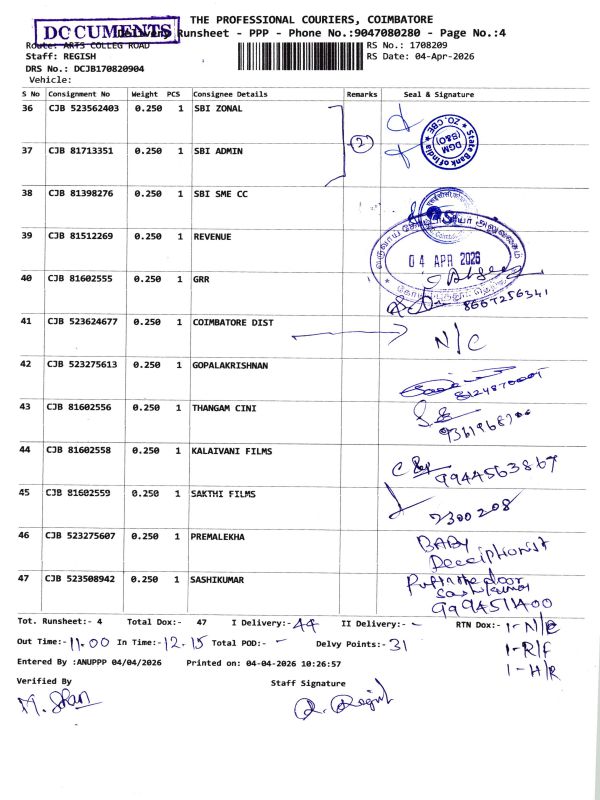 THE PROFESSIONAL COURIERS, COIMBATORE
DOCUMENTS
Delivery Runsheet - PPP - Phone No.:9047080280 - Page No.:4
Route: ARTS COLLEG ROAD
RS No.: 1708209
Staff: REGISH
RS Date: 04-Apr-2026
DRS No.: DCJB170820904
Vehicle:
S No Consignment No Weight PCS Consignee Details Remarks Seal & Signature
36 CJB 523562403 0.250 1 SBI ZONAL
2
State Bank of India ZO. CBE DGM (B&O)
37 CJB 81713351 0.250 1 SBI ADMIN
38 CJB 81398276 0.250 1 SBI SME CC
39 CJB 81512269 0.250 1 REVENUE
04 APR 2026
40 CJB 81602555 0.250 1 GRR
8667256341
41 CJB 523624677 0.250 1 COIMBATORE DIST
N/C
42 CJB 523275613 0.250 1 GOPALAKRISHNAN
43 CJB 81602556 0.250 1 THANGAM CINI
44 CJB 81602558 0.250 1 KALAIVANI FILMS
9944563867
45 CJB 81602559 0.250 1 SAKTHI FILMS
2300208
46 CJB 523275607 0.250 1 PREMALEKHA
BABY
Deceiptionist
47 CJB 523508942 0.250 1 SASHIKUMAR
Put in the door
Sashikumar
Tot. Runsheet:- 4 Total Dox:- 47 I Delivery:- 44 II Delivery:- - RTN Dox:- 1-N/C
Out Time:- 11.00 In Time:- 12.15 Total POD:- - Delvy Points:- 31
1-R/F
1-H/R
Entered By :ANUPPP 04/04/2026 Printed on: 04-04-2026 10:26:57
Verified By Staff Signature
M. Shan
R. Regish